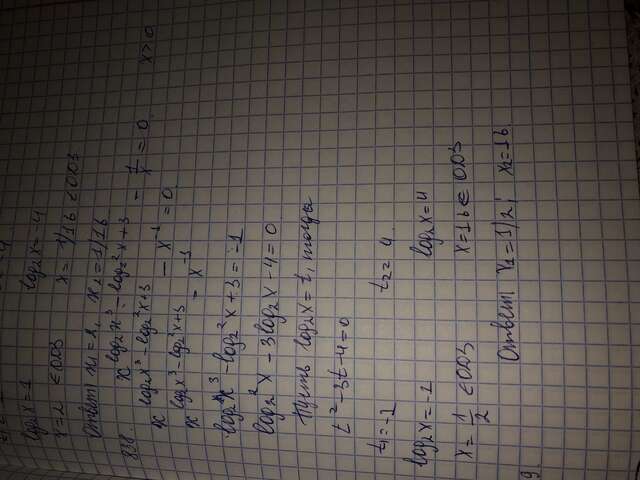 log₂x=1 log₂x=-4
x=2 ∈ ОДЗ x= 1/16 ∈ ОДЗ
Ответ x₂=1/16
838. x^(log₂x³-log₂²x+3) - 1/x = 0 x>0
x^(log₂x³-log₂²x+3) - x⁻¹ = 0
x^(log₂x³-log₂²x+3) = x⁻¹
log₂x³-log₂²x+3=-1
log₂²x-3log₂x-4=0
Пусть log₂x=t, тогда
t²-3t-4=0
t₁=-1 t₂=4
log₂x=-1 log₂x=4
x=1/2 ∈ ОДЗ x=16 ∈ ОДЗ
Ответ x₁=1/2; x₂=16.
9.